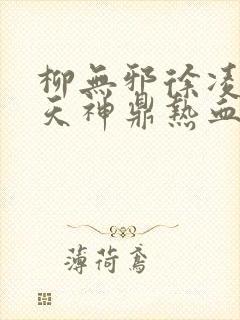 柳無邪徐凌
天神鼎熱血
薄荷鳶